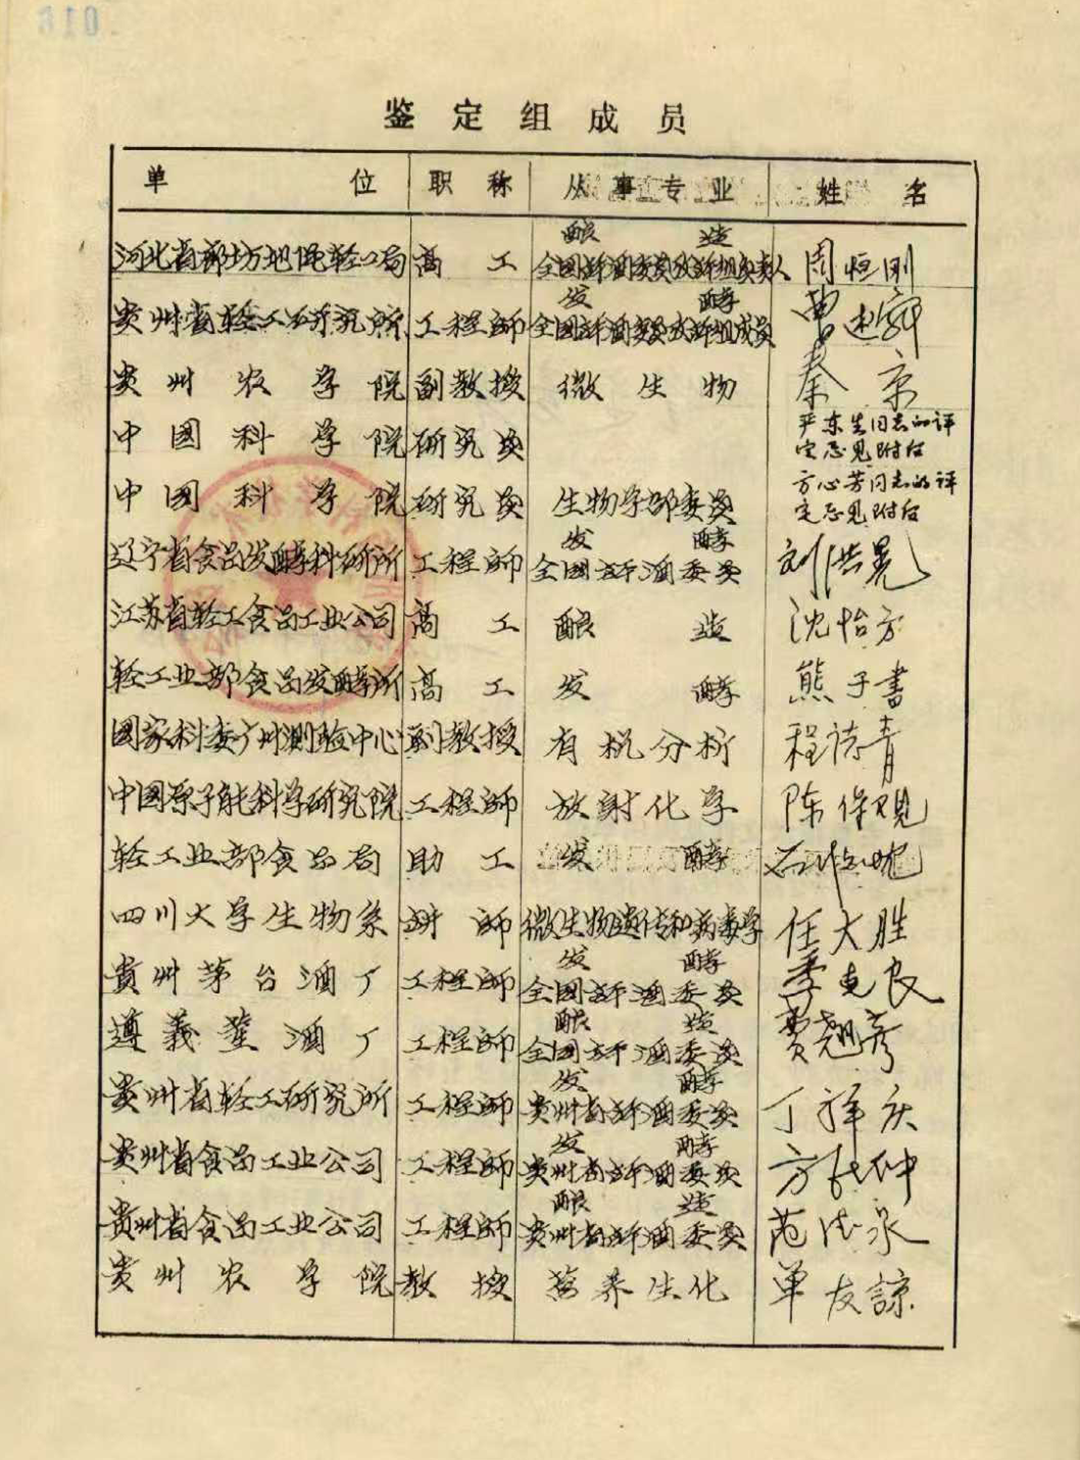 鉴定组成员
单位 职称 从事专业 姓名
酿造
河北省廊坊地区轻工局 高工 全国评酒委员 周恒刚
发酵
贵州省轻工研究所 工程师 全国评酒委员 曹述舜
贵州农学院 副教授 微生物 秦京
中国科学院 研究员 严东生同志的评
定意见附后
中国科学院 研究员 生物学部委员 方心芳同志的评
定意见附后
发酵
辽宁省食品发酵科研所 工程师 全国评酒委员 刘洪晃
江苏省轻工食品工业公司 高工 酿造 沈怡方
轻工业部食品发酵所 高工 发酵 熊子書
國家科委广州测验中心 副教授 有机分析 程誌青
中国原子能科学研究院 工程师 放射化学 陈保
轻工业部食品局 助工 发酵
四川大学生物系 讲师 微生物遗传和病毒学 任大胜
发酵
貴州茅台酒厂 工程师 全国评酒委员 季克良
酿造
遵義董酒厂 工程师 全国评酒委员 贾翘彦
发酵
贵州省轻工研究所 工程师 贵州省评酒委员 丁祥庆
发酵
贵州省食品工业公司 工程师 贵州省评酒委员 方长仲
酿造
貴州省食品工业公司 工程师 贵州省评酒委员 范德泉
贵州农学院 教授 营养生化 单友諒